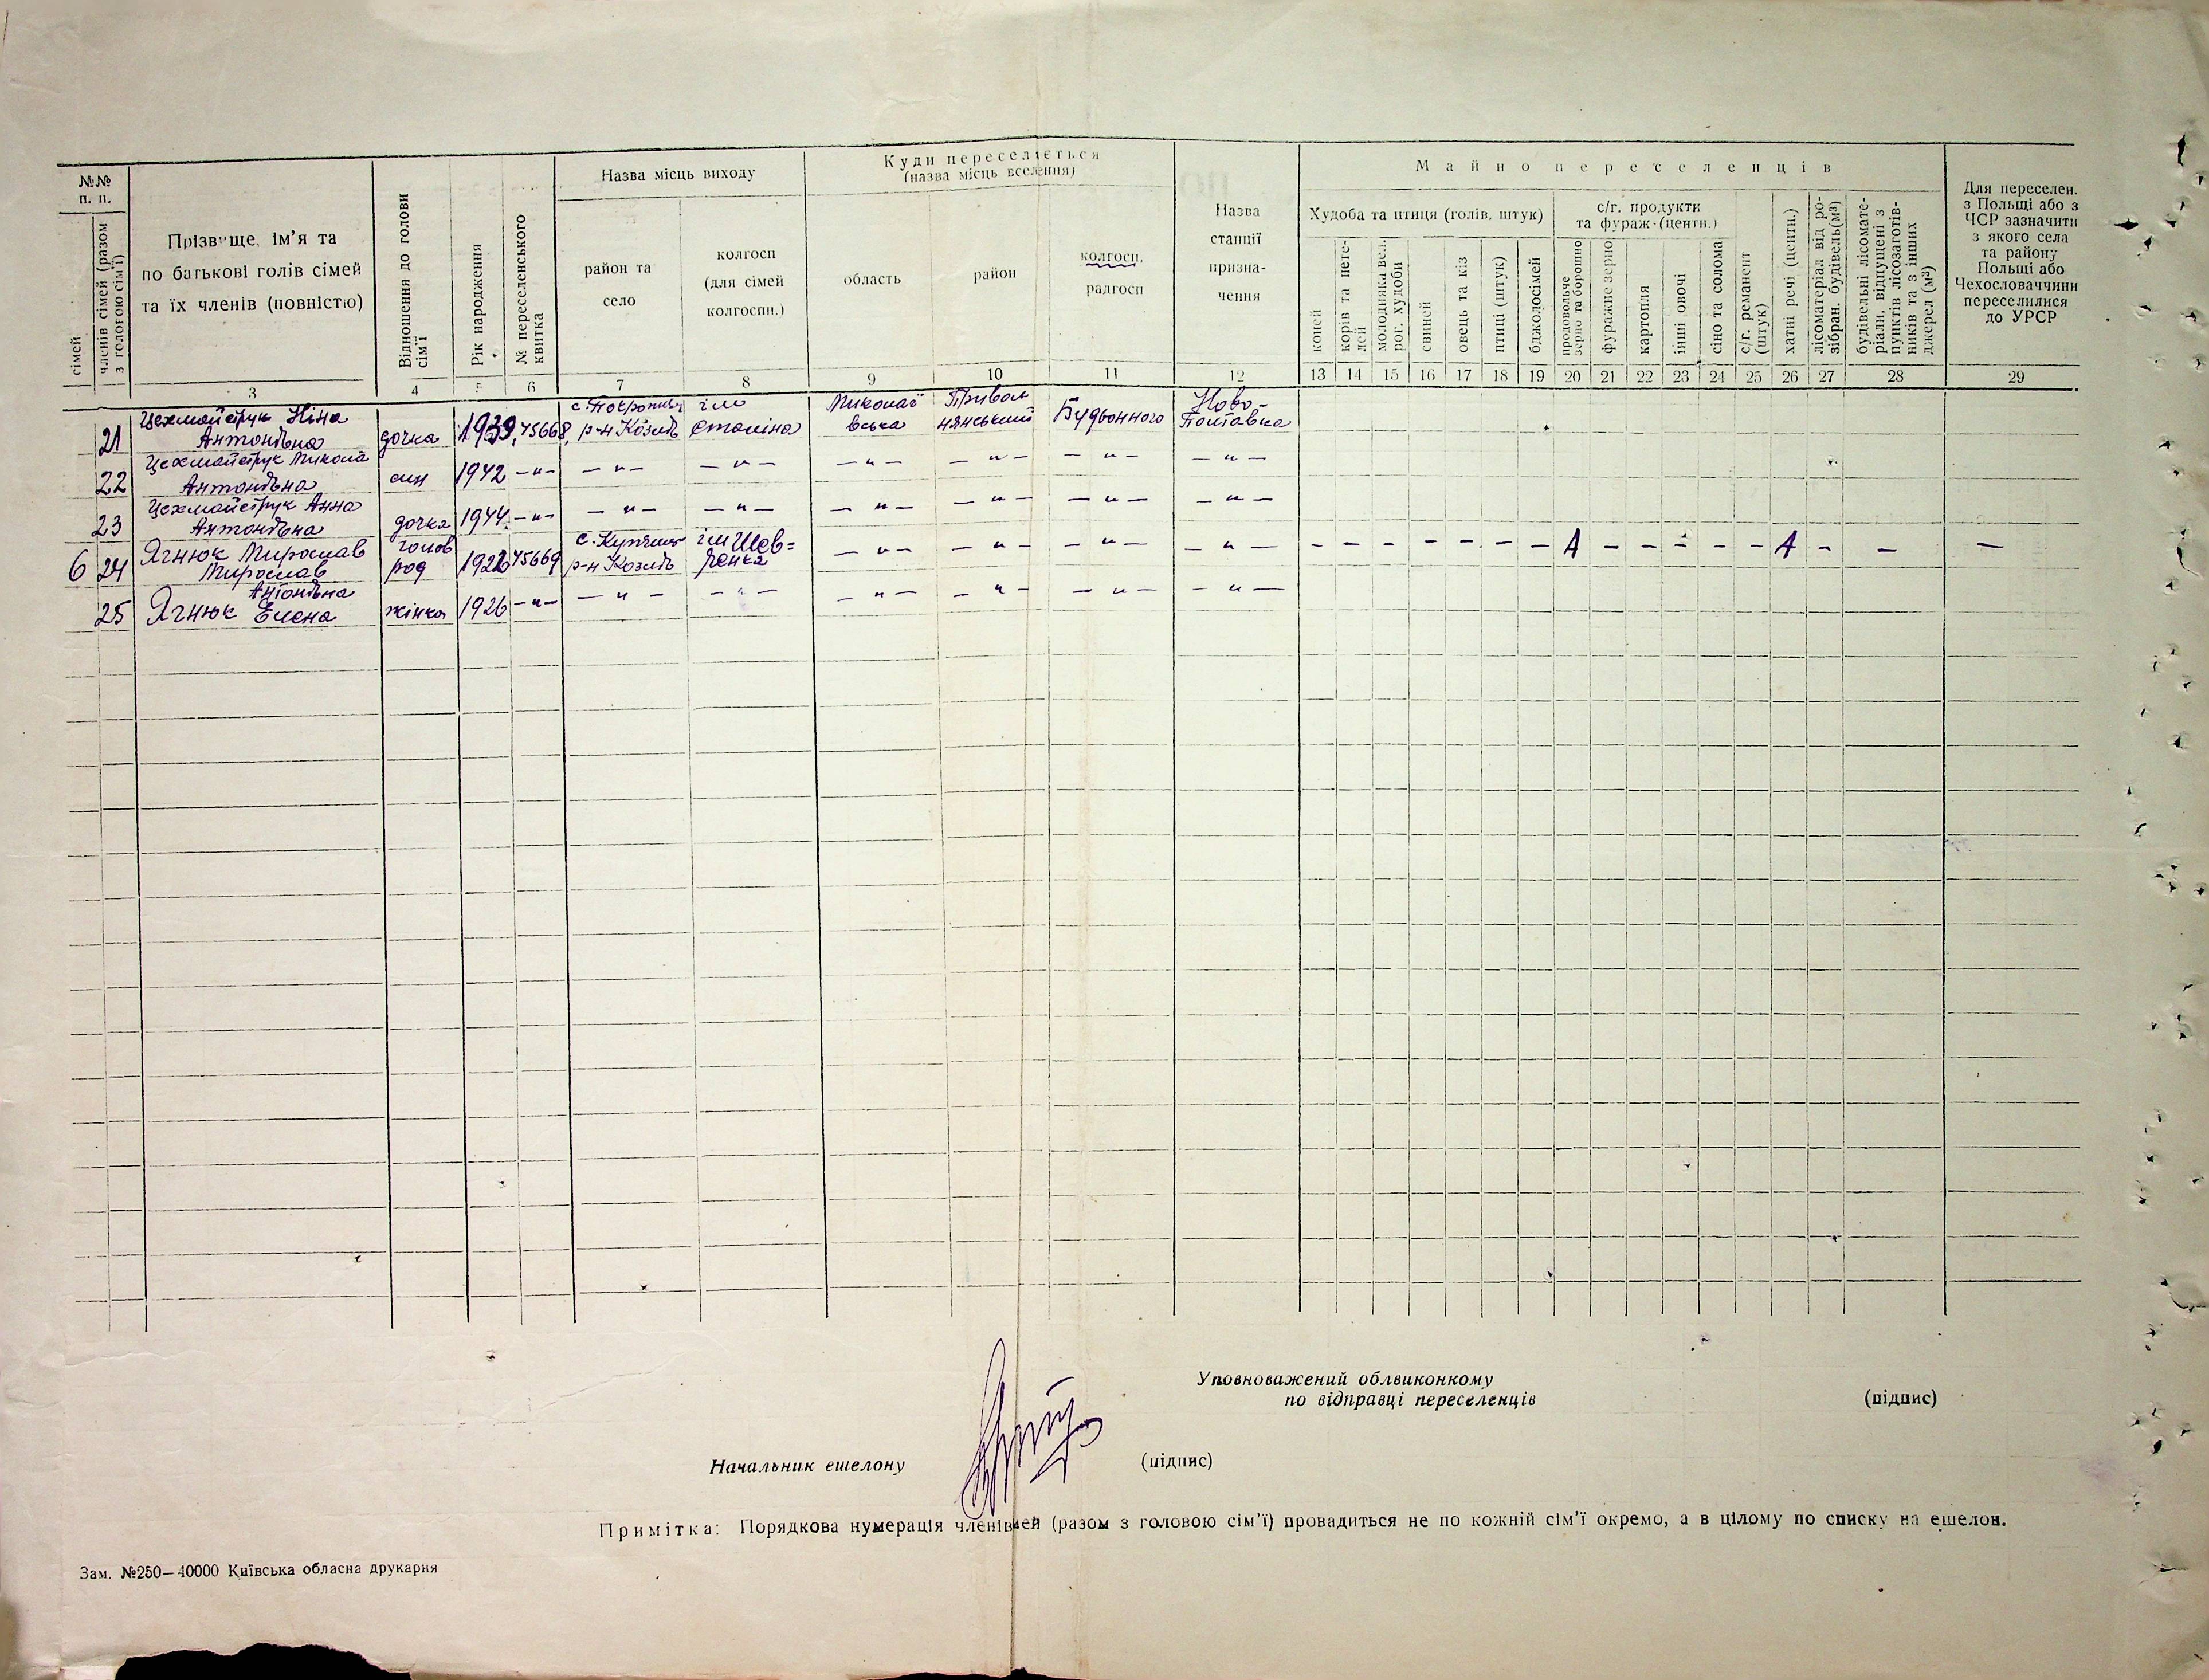 №№ п. п.
сімей
членів сімей (разом з головою сім'ї)
Прізвище, ім'я та
по батькові голів сімей
та їх членів (повністю)
Відношення до голови сім'ї
Рік народження
№ переселенського квитка
Назва місць виходу
район та село
колгосп (для сімей колгоспн.)
Куди переселяється
(назва місць вселення)
область
район
колгосп, радгосп
Назва станції призна- чення
Майно переселенців
Худоба та птиця (голів, штук)
коней
корів та нете- лей
молодняка вел. рог. худоби
свиней
овець та кіз
птиці (штук)
бджолосімей
с/г. продукти та фураж (центн.)
продовольче зерно та борошно
фуражне зерно
картопля
інші овочі
сіно та солома
с/г. реманент (штук)
хатні речі (центн.)
лісоматеріал від ро- зібран. будівель (м³)
будівельні лісомате- ріали, відпущені з пунктів лісозаготів- ників та з інших джерел (м³)
Для переселен. з Польщі або з ЧСР зазначити з якого села та району Польщі або Чехословаччини переселилися до УРСР
3 4 5 6 7 8 9 10 11 12 13 14 15 16 17 18 19 20 21 22 23 24 25 26 27 28 29
21 Цехмайструк Ніна Антонівна дочка 1939 45668 р-н Козів ім Сталіна Миколаївська Привольнянський Будьонного Ново-Полтавка
22 Цехмайструк Микола Антонівна син 1942 —"— —"— —"— —"— —"— —"— —"—
23 Цехмайструк Анна Антонівна дочка 1944 —"— —"— —"— —"— —"— —"— —"—
6 24 Ягнюк Мирослав Мирослав голов род 1922 45669 р-н Козів ім Шев=ченка —"— —"— —"— —"— - - - - - - - - - - - - - - -
25 Ягнюк Елена Антонівна жінка 1926 —"— —"— —"— —"— —"— —"— —"—
Уповноважений облвиконкому
по відправці переселенців (підпис)
Начальник ешелону (підпис)
Примітка: Порядкова нумерація членів сімей (разом з головою сім'ї) провадиться не по кожній сім'ї окремо, а в цілому по списку на ешелон.
Зам. №250—40000 Київська обласна друкарня